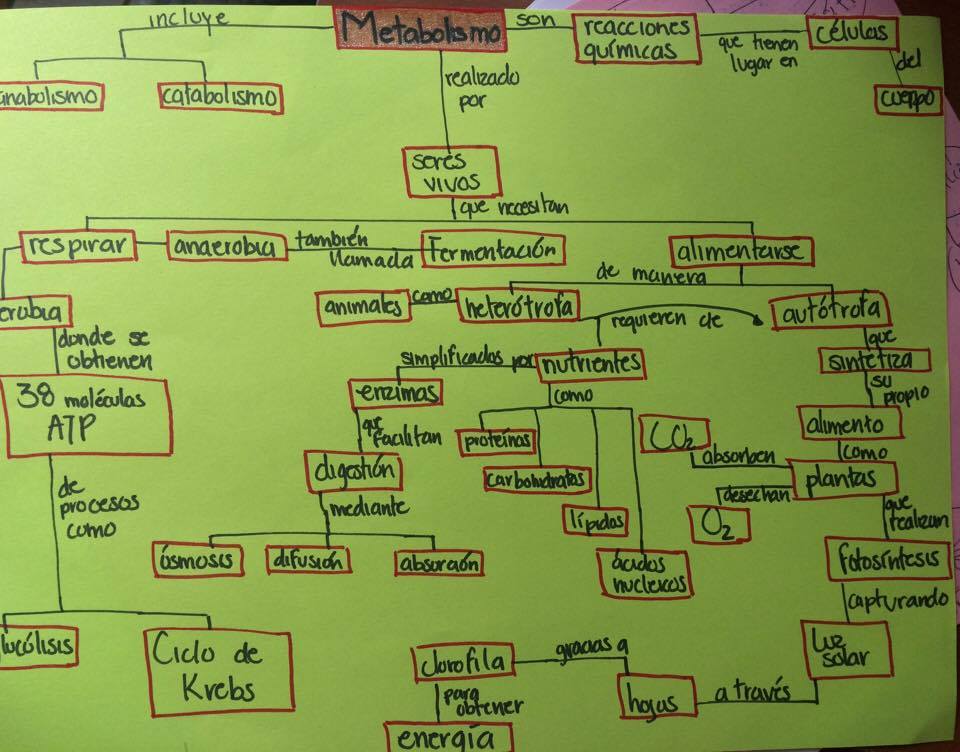 incluye
Metabolismo
son
reacciones
químicas
que tienen
lugar en
células
del
cuerpo
anabolismo
catabolismo
realizado
por
seres
vivos
que necesitan
respirar
anaerobia
también
llamada
Fermentación
alimentarse
de manera
animales
como
heterótrofa
requieren de
autótrofa
erobia
donde se
obtienen
38 moléculas
ATP
de
procesos
como
lucólisis
Ciclo de
Krebs
simplificados por
nutrientes
enzimas
que
facilitan
digestión
mediante
ósmosis
difusión
absorción
como
proteínas
carbohidratos
lípidos
ácidos
nucleicos
que
sintetiza
su
propio
alimento
como
plantas
absorben
CO2
desechan
O2
que
realizan
fotosíntesis
capturando
luz
solar
a través
hojas
gracias a
clorofila
para
obtener
energía